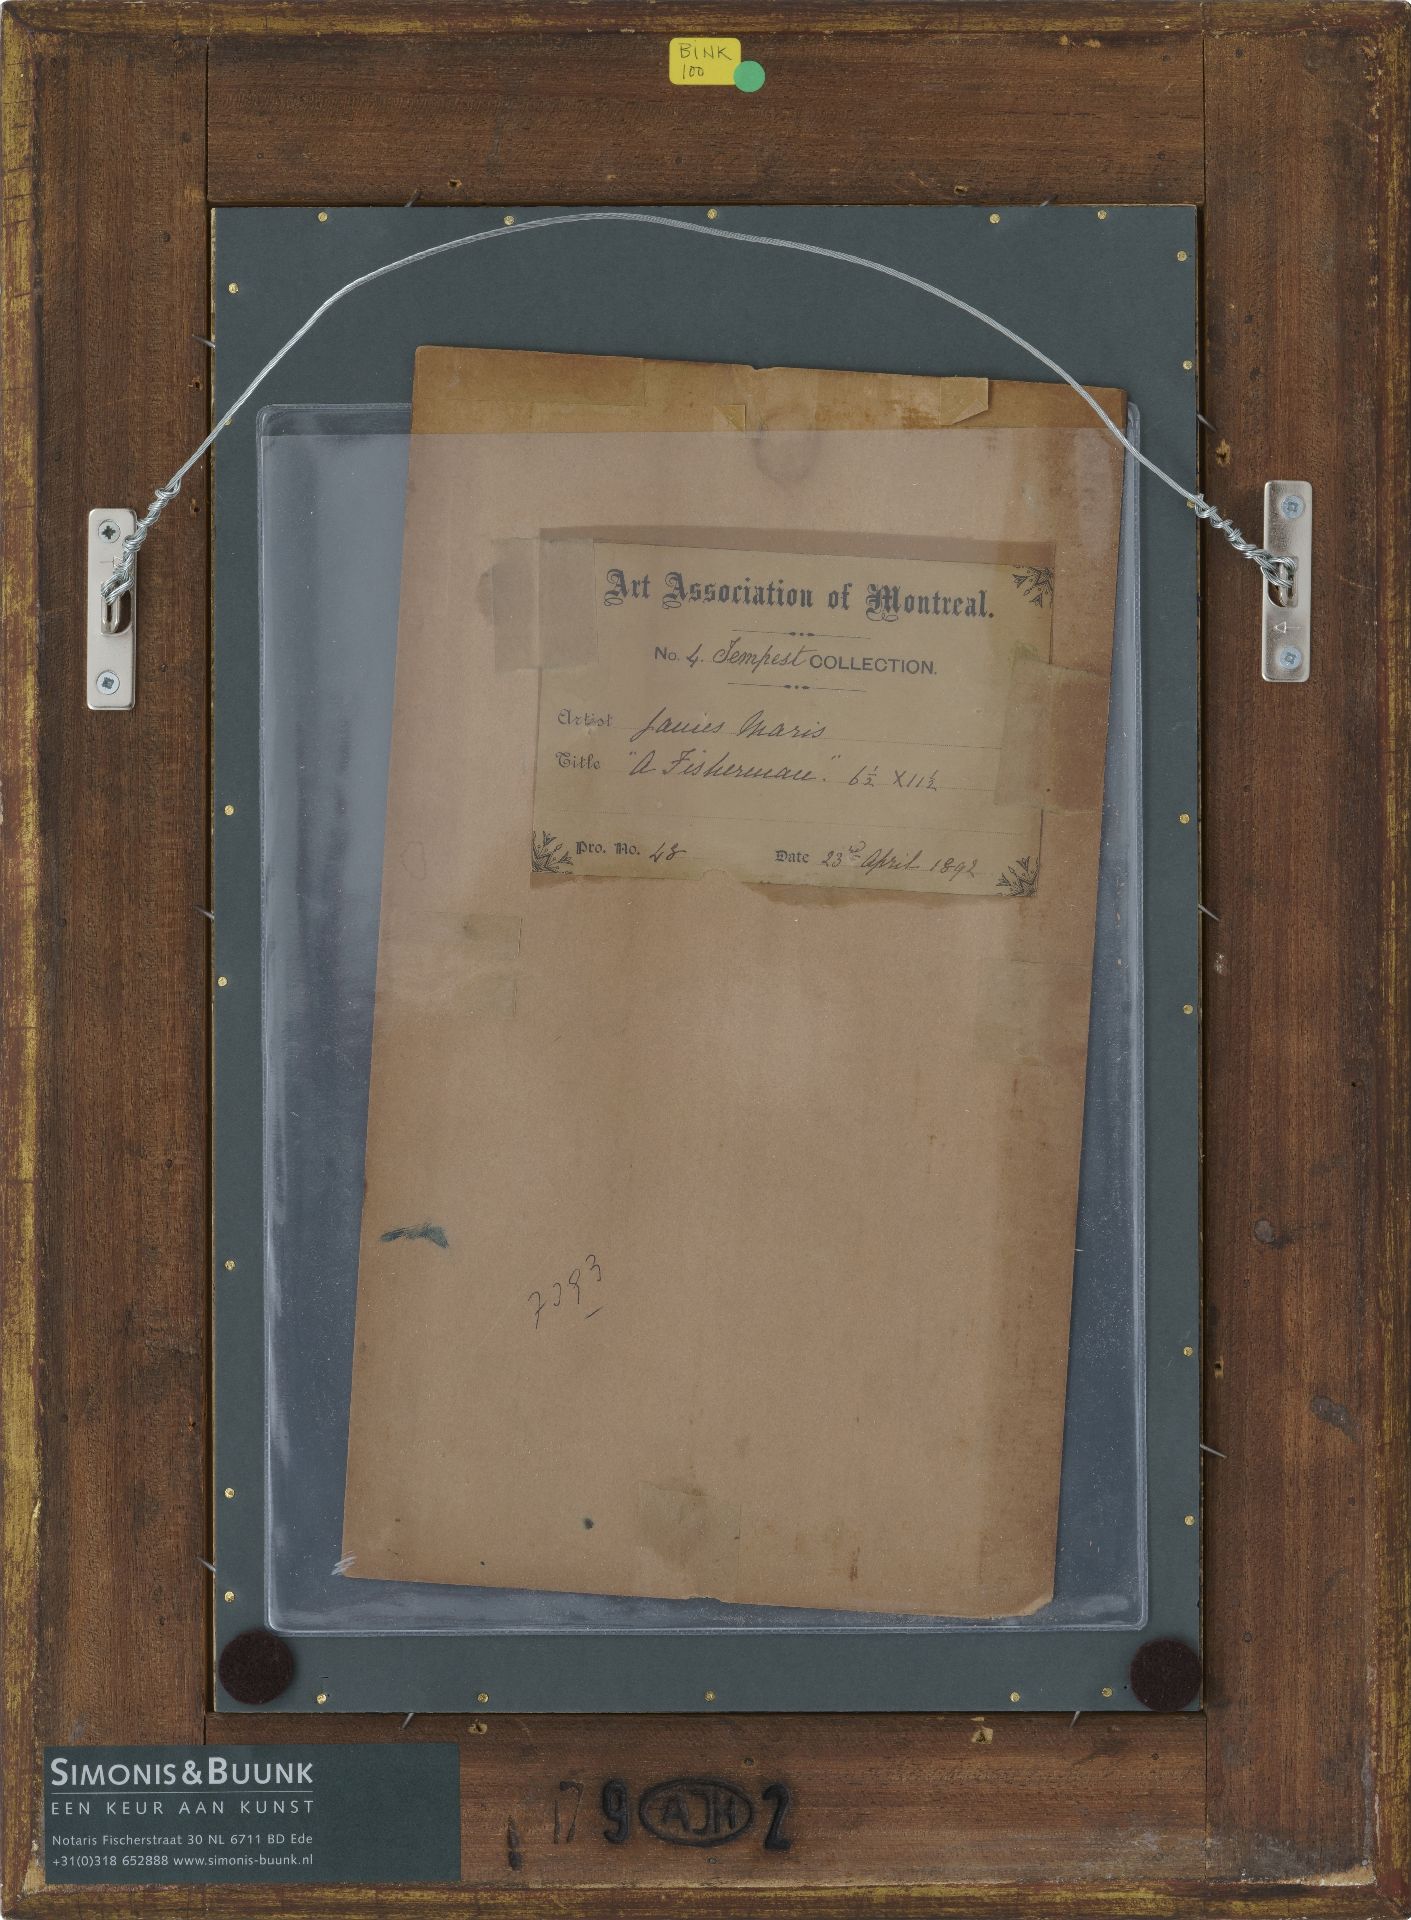 BINK
100
Art Association of Montreal.
No. 4. Tempest COLLECTION.
Artist James Maris
Title "A Fisherman." 6½ x 11½
Pro. No. 48
Date 23rd April 1892
7393
SIMONIS & BUUNK
EEN KEUR AAN KUNST
Notaris Fischerstraat 30 NL 6711 BD Ede
+31(0)318 652888 www.simonis-buunk.nl
9 AJH 2